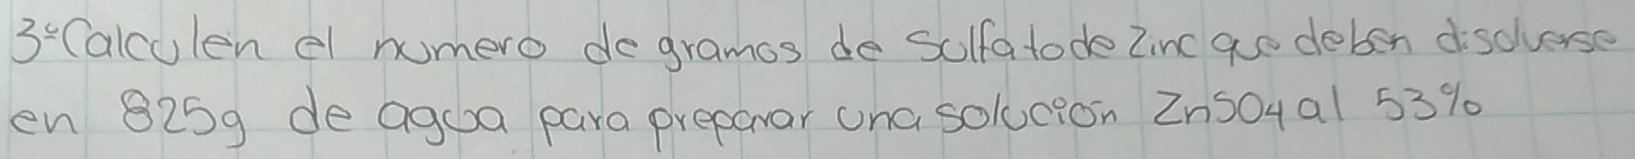 3º Calculen el numero de gramos de sulfato de zinc que deben disolverse
en 825g de agua para preparar una solución ZnSO4 al 53%